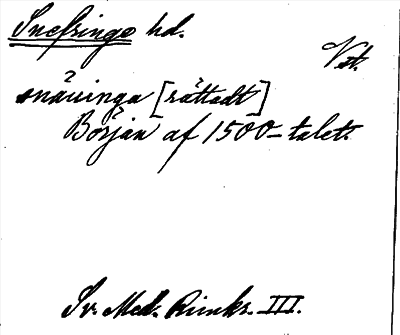 Snefringe hd.
Vst.
snäuinga [rättadt]
Början af 1500-talet.
Sv. Med. Rimkr. III.